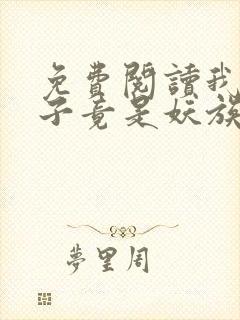 免費閱讀我
子竟是妖族
夢里周